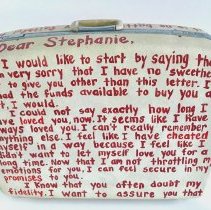 Dear Stephanie,
I would like to start by saying tha
very sorry that I have no sweethe
to give you other than this letter. I
had the funds available to buy you a
t, I would.
I could not say exactly how long I
ve loved you, now. It seems like I have
ways loved you. I can't really remember
thing else. I feel like I have cheated
yself in a way because I feel like I
didn't want to let myself love you for a
long time. Now that I am not throttling my
emotions for you, I can feel secure in my
promises to you.
I know that you often doubt my
fidelity. I want to assure you that